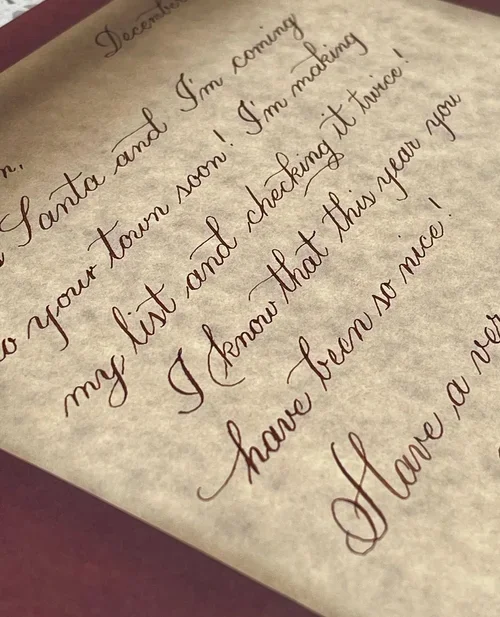 December
n,
Santa and I'm coming
to your town soon! I'm making
my list and checking it twice!
I know that this year you
have been so nice!
Have a ver